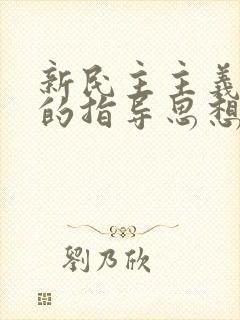 新民主主義
的指导思想
劉乃欣